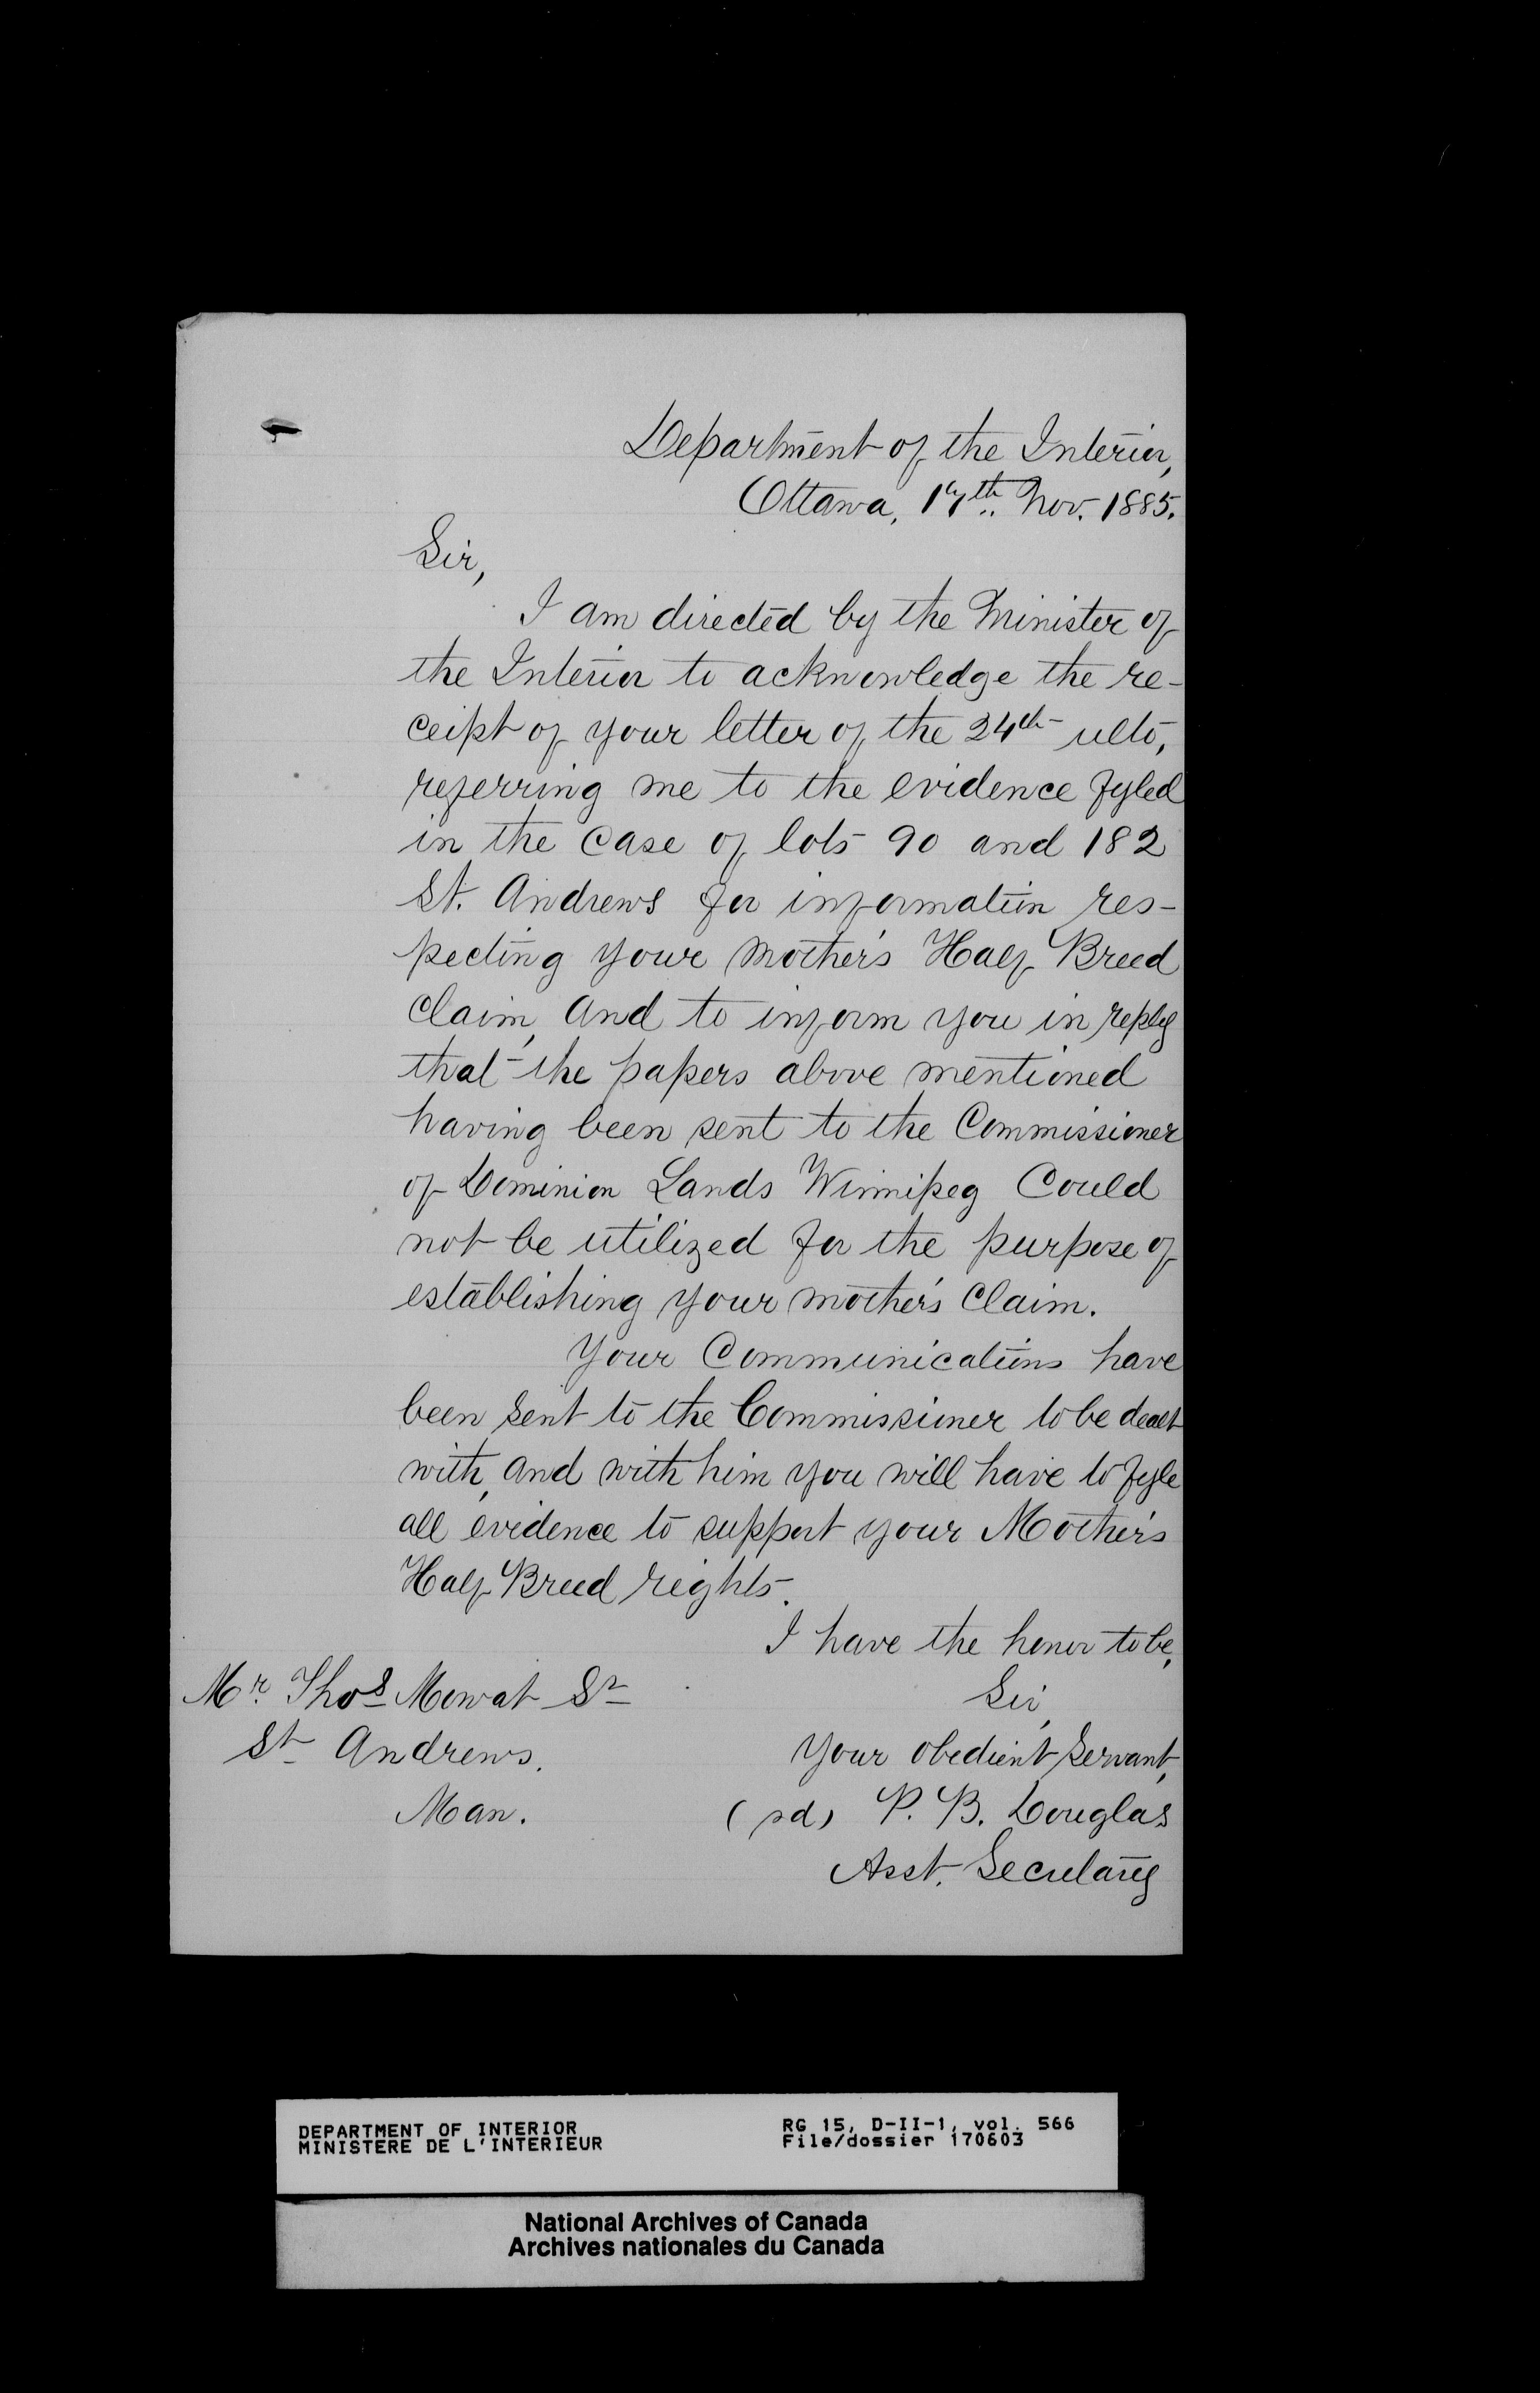 Department of the Interior,
Ottawa, 17th. Nov. 1885.
Sir,
I am directed by the Minister of
the Interior to acknowledge the re-
ceipt of your letter of the 24th ulto,
referring me to the evidence fyled
in the case of lots 90 and 182
St. Andrews for information res-
pecting your mother's Half Breed
claim, and to inform you in reply
that the papers above mentioned
having been sent to the Commissioner
of Dominion Lands Winnipeg Could
not be utilized for the purpose of
establishing your mother's Claim.
Your Communications have
been sent to the Commissioner to be dealt
with, and with him you will have to fyle
all evidence to support your Mother's
Half Breed rights.
I have the honor to be,
Mr. Thos Mowat Sr
Sir,
St Andrews.
Your obedient servant,
Man.
(sd) P. B. Douglas
Asst. Secretary
DEPARTMENT OF INTERIOR
MINISTERE DE L'INTERIEUR
RG 15, D-II-1, vol. 566
File/dossier 170603
National Archives of Canada
Archives nationales du Canada